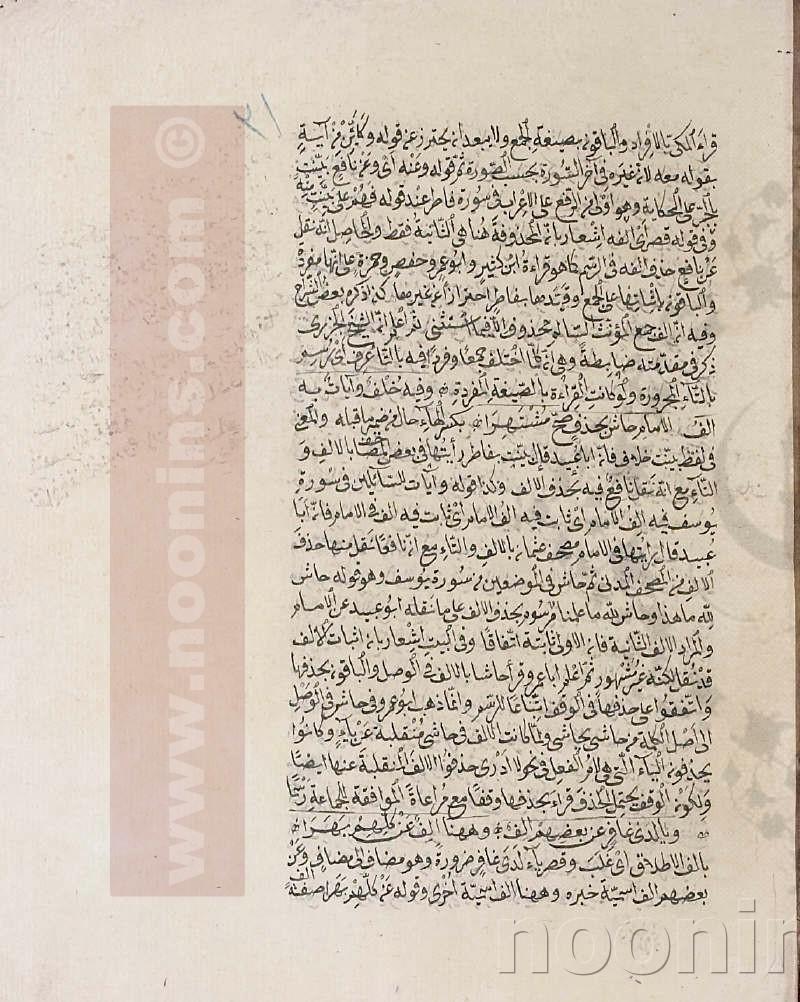 ٣١
قراءة المكى بالافراد والباقون بصيغة الجمع ولا يبعد ان يحترز عن قوله وكأين من آية
بقوله معه لانه غيره فى آخر السورة بحسب الصورة ثم قوله وعنه اى وعن نافع بينت
بالجر على الحكاية وهو اولى من الرفع على الاعراب فى سورة فاطر عند قوله فهم على بينت منه
وفى قوله قصر اى الفه اشعار بان المحذوفة هنا هى الثانية فقط والحاصل انه نقل
عن نافع حذف الفه فى الرسم كما هو قراءة ابن كثير وابو عمرو وحفص وحمزة على انها مفرد
والباقون باثباتها على الجمع وقيدها بفاطر احترازا عن غيرها كذا ذكره بعض الشراح
وفيه ان الف جمع المؤنث السالم محذوف الا فيما استثنى ثم اعلم ان الشيخ الجزرى
ذكر فى مقدمته ضابطة وهى ان كل ما اختلف جمعا وفردا فيه بالتاء عرف اى رسم
بالتاء المجرورة ولو كانت القراءة بالصيغة المفردة وفيه خلف وآيات به
الف الامام حاش بحذف صح مشتهرا بكسر الهاء حال من ضمير ما قبله والمعنى
فى لفظ بينت خلف فان ابا عبيد قال بينت بفاطر رأيتها فى بعض المصاحف بالالف و
التاء مع انه نقل نافع فيه بحذف الالف وكذا قوله وآيات للسائلين فى سورة
يوسف فيه الف الامام اى ثابت فيه الف الامام اى ثابت فيه الف فى الامام فان ابا
عبيد قال رايتها فى الامام مصحف عثمان بالالف والتاء مع ان نافعا نقل منها حذف
الالف من المصحف المدنى ثم حاش فى الموضعين من سورة يوسف وهو قوله حاش
لله ما هذا وحاش لله ما علمنا مرسوم بحذف الالف على ما نقله ابو عبيد عن الامام
والمراد الالف الثانية فان الاولى ثابتة اتفاقا وفى البيت اشعار بان اثبات الالف
قد نقل لكنه غير مشهور ثم اعلم ان ابا عمرو قرأ حاشا بالالف فى الوصل والباقون بحذفها
واتفقوا على حذفها فى الوقف اتباعا للرسم وانما ذهب ابو عمرو فى حاش فى الوصل
الى اصل الكلمة من حاشى يحاشى ولما كانت الالف فى حاشى منقلبة عن ياء وكانوا
يحذفون الياء التى هى لام الفعل فى نحو لا ادرى حذفوا الالف المنقلبة عنها ايضا
ولكون الوقف يحتمل الحذف قراء بحذفها وقفا مع مراعاة الموافقة للجماعة رسما
ويا لدى غافر عن بعضهم الف وههنا الف عن كلهم بهرا
بالف الاطلاق اى غلب وقصر ياء لدى غافر ضرورة وهو مضاف الى مضاف وعن
بعضهم الف اسمية خبره وههنا الف اسمية اخرى وقوله عن كلهم بهرا صفة الف
www.noonins.com ©
noonin